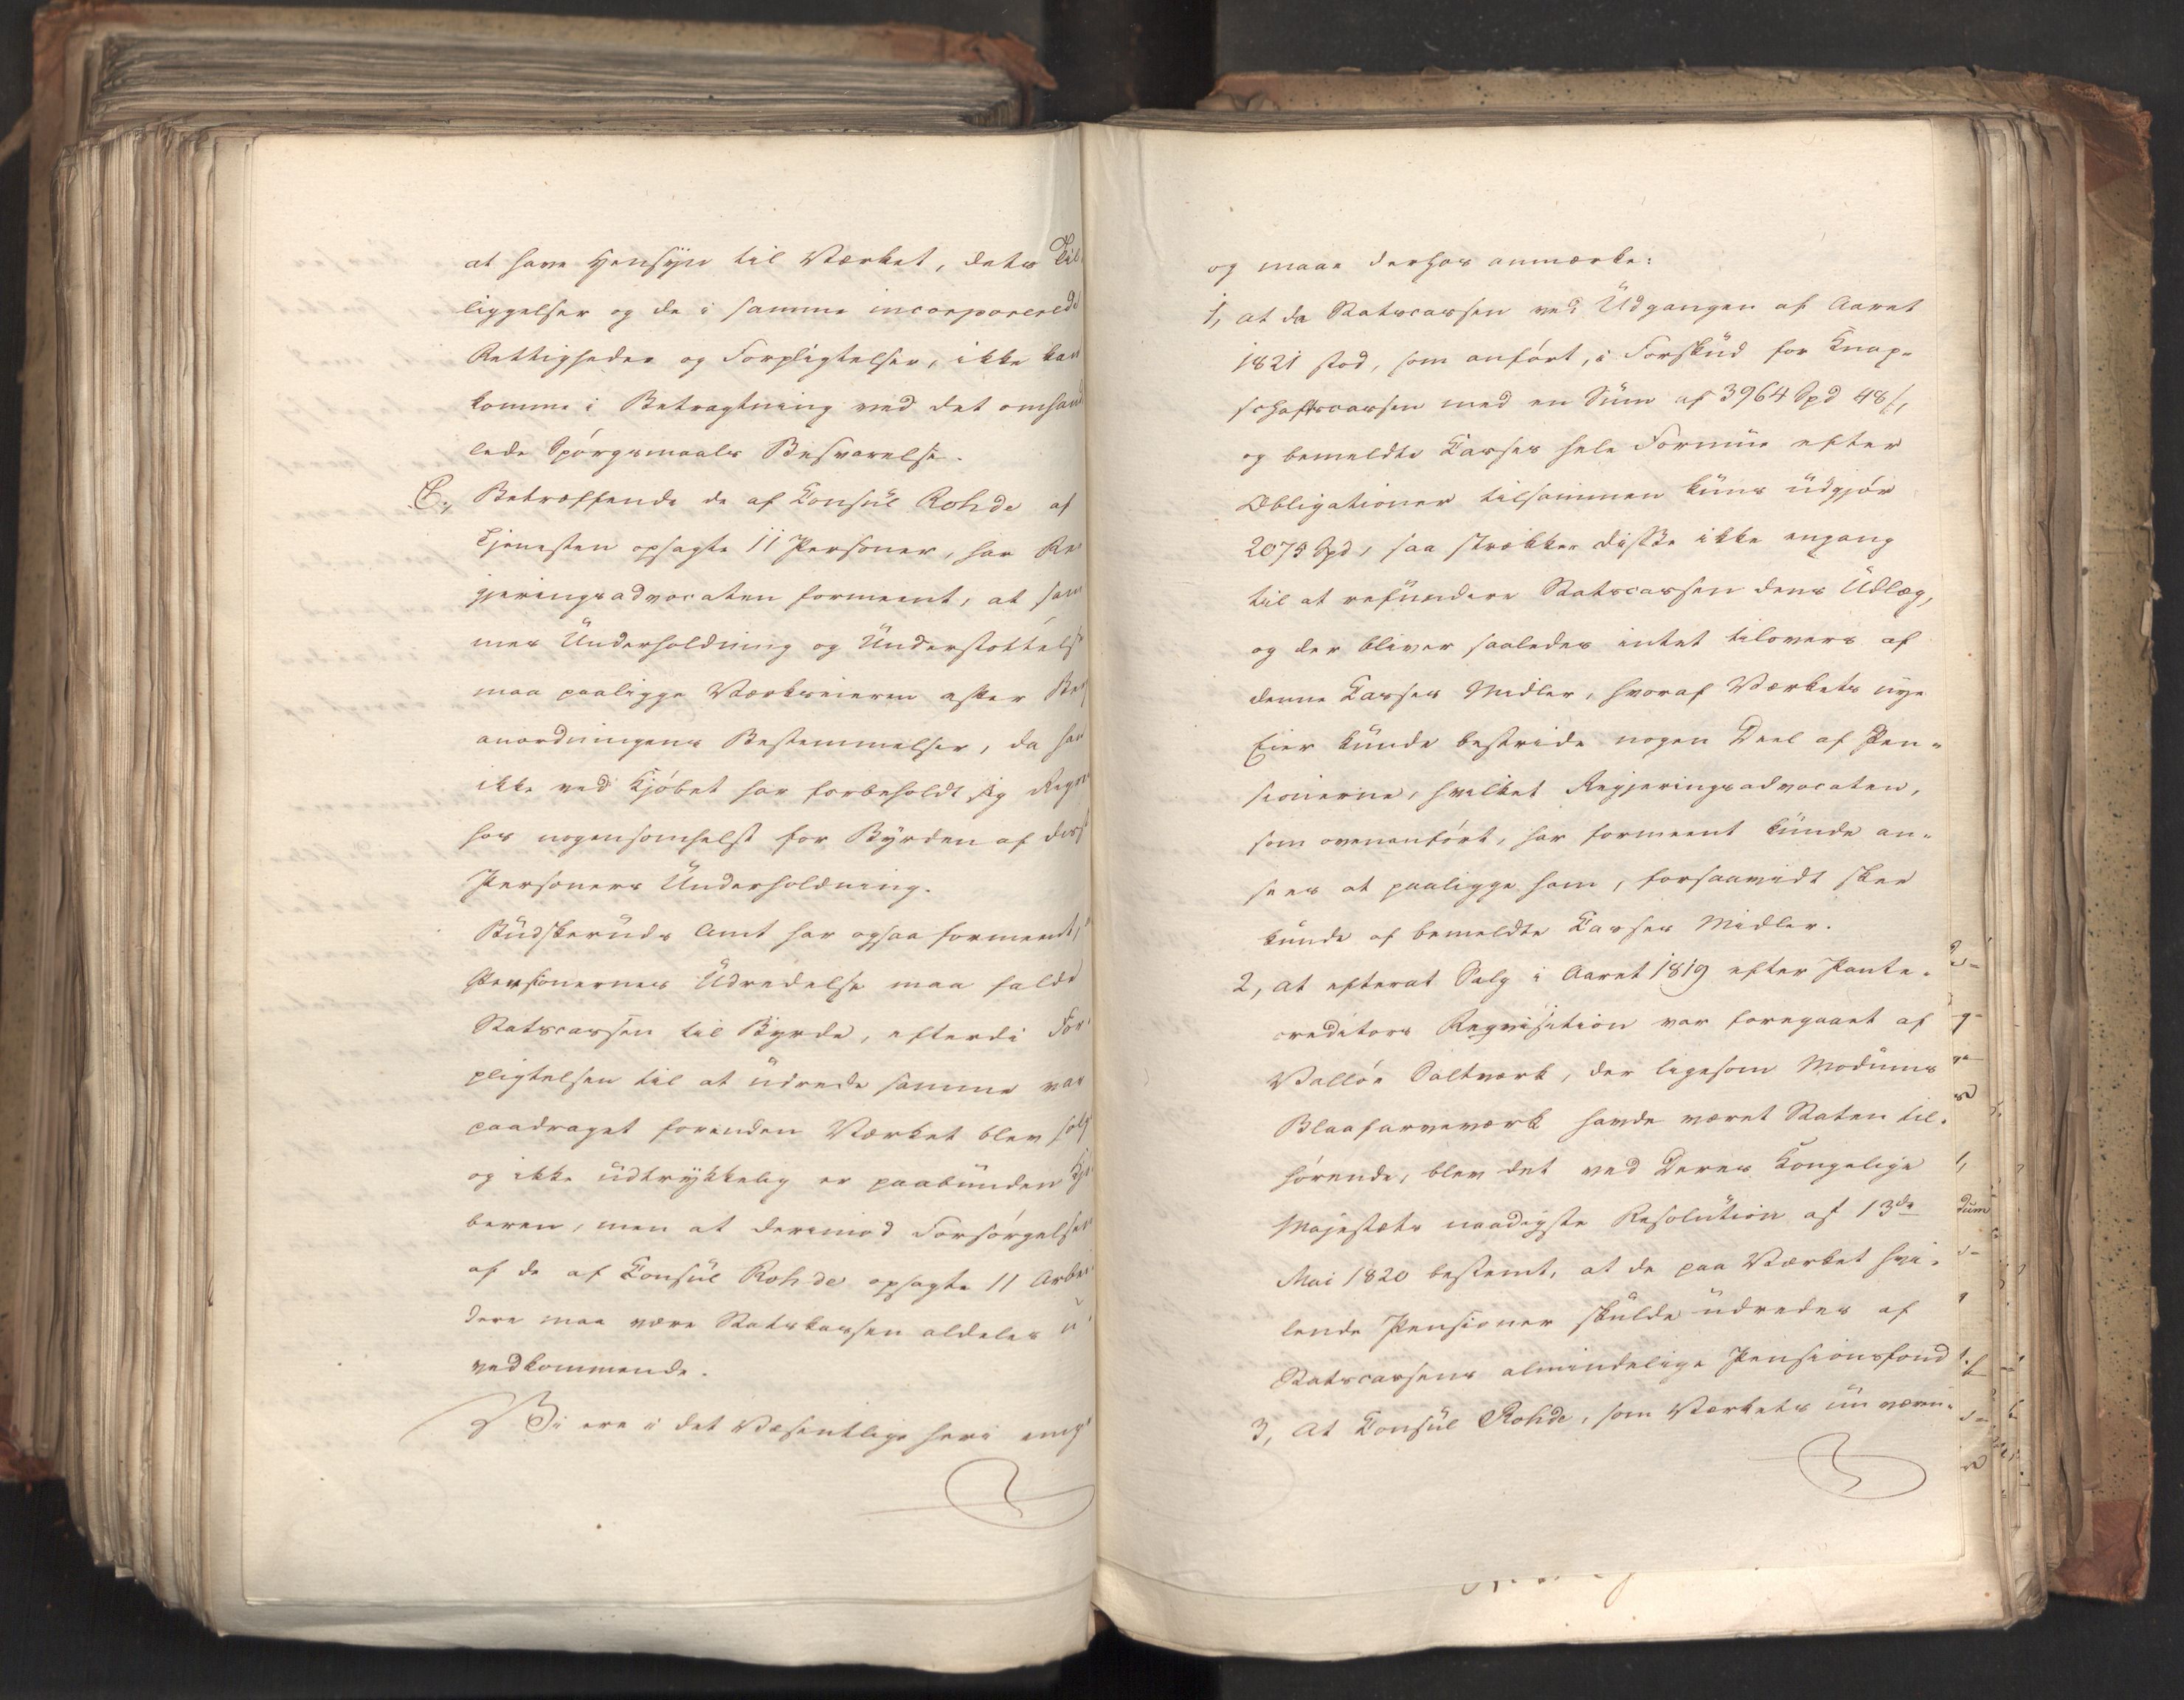 at have Hensyn til Værket, dets Til
liggelser og de i samme incorporerede
Rettigheder og Forpligtelser, ikke kan
komme i Betragtning ved det omhand
lede Spörgsmaals Besvarelse.
C, Betræffende de af Consul Rohde af
Tjenesten opsagte 11 Personer, har Re
gjeringsadvocaten formeent, at sam
mes Underholdning og Understöttelse
maa paaligge Værkseieren efter Berg
anordningens Bestemmelser, da han
ikke ved Kjöbet har forbeholdt sig Regres
hos nogensomhelst for Byrden af disse
Personers Underholdning.
Budskeruds Amt har ogsaa formeent,
Pensionernes Udredelse maa falde
Statscassen til Byrde, efterdi For
pligtelsen til at udrede samme var
paadraget forinden Værket blev solgt
og ikke udtrykkelig er paabunden Kjö
beren, men at derimod Forsörgelsen
af de af Consul Rohde opsagte 11 Arbei
dere maa være Statskassen aldeles u
vedkommende.
Vi ere i det Væsentlige heri enige
og maae derhos anmærke:
1, at da Statscassen ved Udgangen af Aaret
1821 stod, som anfört, i Forskud for Knap-
schaftscassen med en Sum af 3964 Spd 48 s,
og bemeldte Casses hele Formue efter
Obligationer tilsammen kuns udgjör
2075 Spd, saa strække disse ikke engang
til at refundere Statscassen dens Udlæg,
og der bliver saaledes intet tilovers af
denne Casses Midler, hvoraf Værkets nye
Eier kunde bestride nogen Deel af Pen-
sionerne, hvilket Regjeringsadvocaten,
som ovenanfört, har formeent kunde an-
sees at paaligge ham, forsaavidt skee
kunde af bemeldte Casses Midler.
2, at efterat Salg i Aaret 1819 efter Pante-
creditors Reqvisition var foregaaet af
Vallöe Saltværk, der ligesom Modums
Blaafarveværk havde været Staten til-
hörende, blev det ved Deres Kongelige
Majestæts naadigste Resolution af 13de
Mai 1820 bestemt, at de paa Værket hvi-
lende Pensioner skulde udredes af
Statscassens almindelige Pensionsfond
3, At Consul Rohde, som Værkets nu væren-